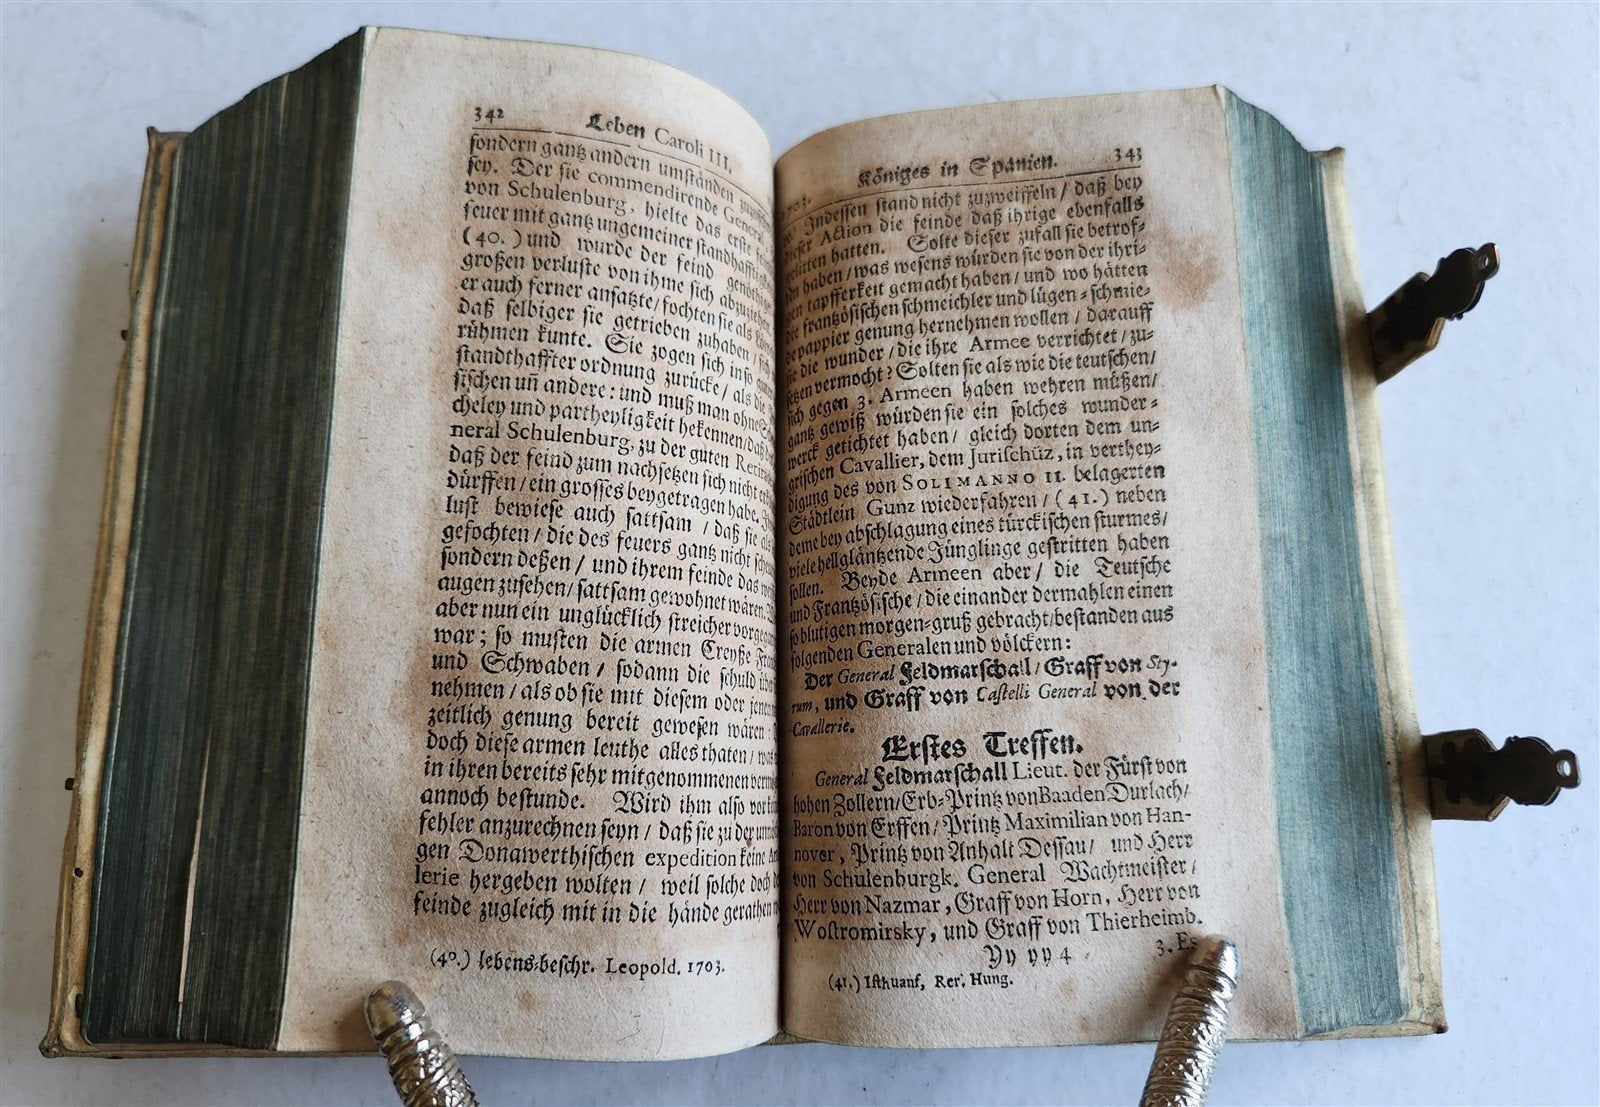 342
Leben Caroli III.
sondern gantz andern umständen
sey. Der sie commendirende General
von Schulenburg, hielte das erste
feuer mit gantz ungemeiner standhafftig
(40.) und wurde der feind genöthig
großen verluste von ihme sich abzuziehen
er auch ferner ansatzte / fochten sie als
daß selbiger sie getrieben zuhaben / sich
rühmen kunte. Sie zogen sich in so guter
standthaffter ordnung zurücke / als die
sischen un̄ andere: und muß man ohne
cheley und partheyligkeit bekennen / daß
neral Schulenburg, zu der guten Retira
daß der feind zum nachsetzen sich nicht
dürffen / ein grosses beygetragen habe.
lust bewiese auch sattsam / daß sie als
gefochten / die des feuers gantz nicht
sondern deßen / und ihrem feinde das
augen zusehen / sattsam gewohnet wären.
aber nun ein unglücklich streicher vorgegan
war; so musten die armen Creyße
und Schwaben / sodann die schuld über
nehmen / als ob sie mit diesem oder jenem
zeitlich genung bereit gewesen wären
doch diese armen leuthe alles thaten /
in ihren bereits sehr mitgenommenen
annoch bestunde. Wird ihm also vor
fehler anzurechnen seyn / daß sie zu der
gen Donawerthischen expedition keine
lerie hergeben wolten / weil solche doch
feinde zugleich mit in die hände gerathen
(40.) lebens-beschr. Leopold. 1703.
Königes in Spanien.
343
1703.
Indessen stand nicht zuzweiffeln / daß bey
dieser Action die feinde daß ihrige ebenfalls
gelitten hatten. Solte dieser zufall sie betrof-
fen haben / was wesens würden sie von der ihri-
gen tapfferkeit gemacht haben / und wo hätten
die frantzösischen schmeichler und lügen-schmie-
de pappier genung hernehmen wollen / darauff
sie die wunder / die ihre Armee verrichtet / zu-
setzen vermocht? Solten sie als wie die teutschen /
sich gegen 3. Armeen haben wehren müßen /
gantz gewiß würden sie ein solches wunder-
werck getichtet haben / gleich dorten dem un-
grischen Cavallier, dem Jurischüz, in verthey-
digung des von SOLIMANNO II. belagerten
Städtlein Gunz wiederfahren / (41.) neben
deme bey abschlagung eines türckischen sturmes /
viele hellgläntzende Jünglinge gestritten haben
sollen. Beyde Armeen aber / die Teutsche
und Frantzösische / die einander dermahlen einen
so blutigen morgen-gruß gebracht / bestanden aus
folgenden Generalen und völckern:
Der General Feldmarschall / Graff von Sty-
rum, und Graff von Castelli General von der
Cavallerie.
Erstes Treffen.
General Feldmarschall Lieut. der Fürst von
hohen Zollern / Erb-Printz von Baaden Durlach /
Baron von Erffen / Printz Maximilian von Han-
nover, Printz von Anhalt Dessau / und Herr
von Schulenburgk. General Wachtmeister /
Herr von Nazmar, Graff von Horn, Herr von
Wostromirsky, und Graff von Thierheimb.
Yy yy 4
3. Es
(41.) Isthuanf, Rer. Hung.